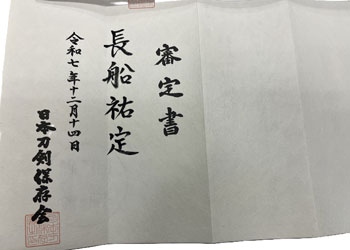 審定書
長船祐定
令和七年十二月十四日
日本刀剣保存会